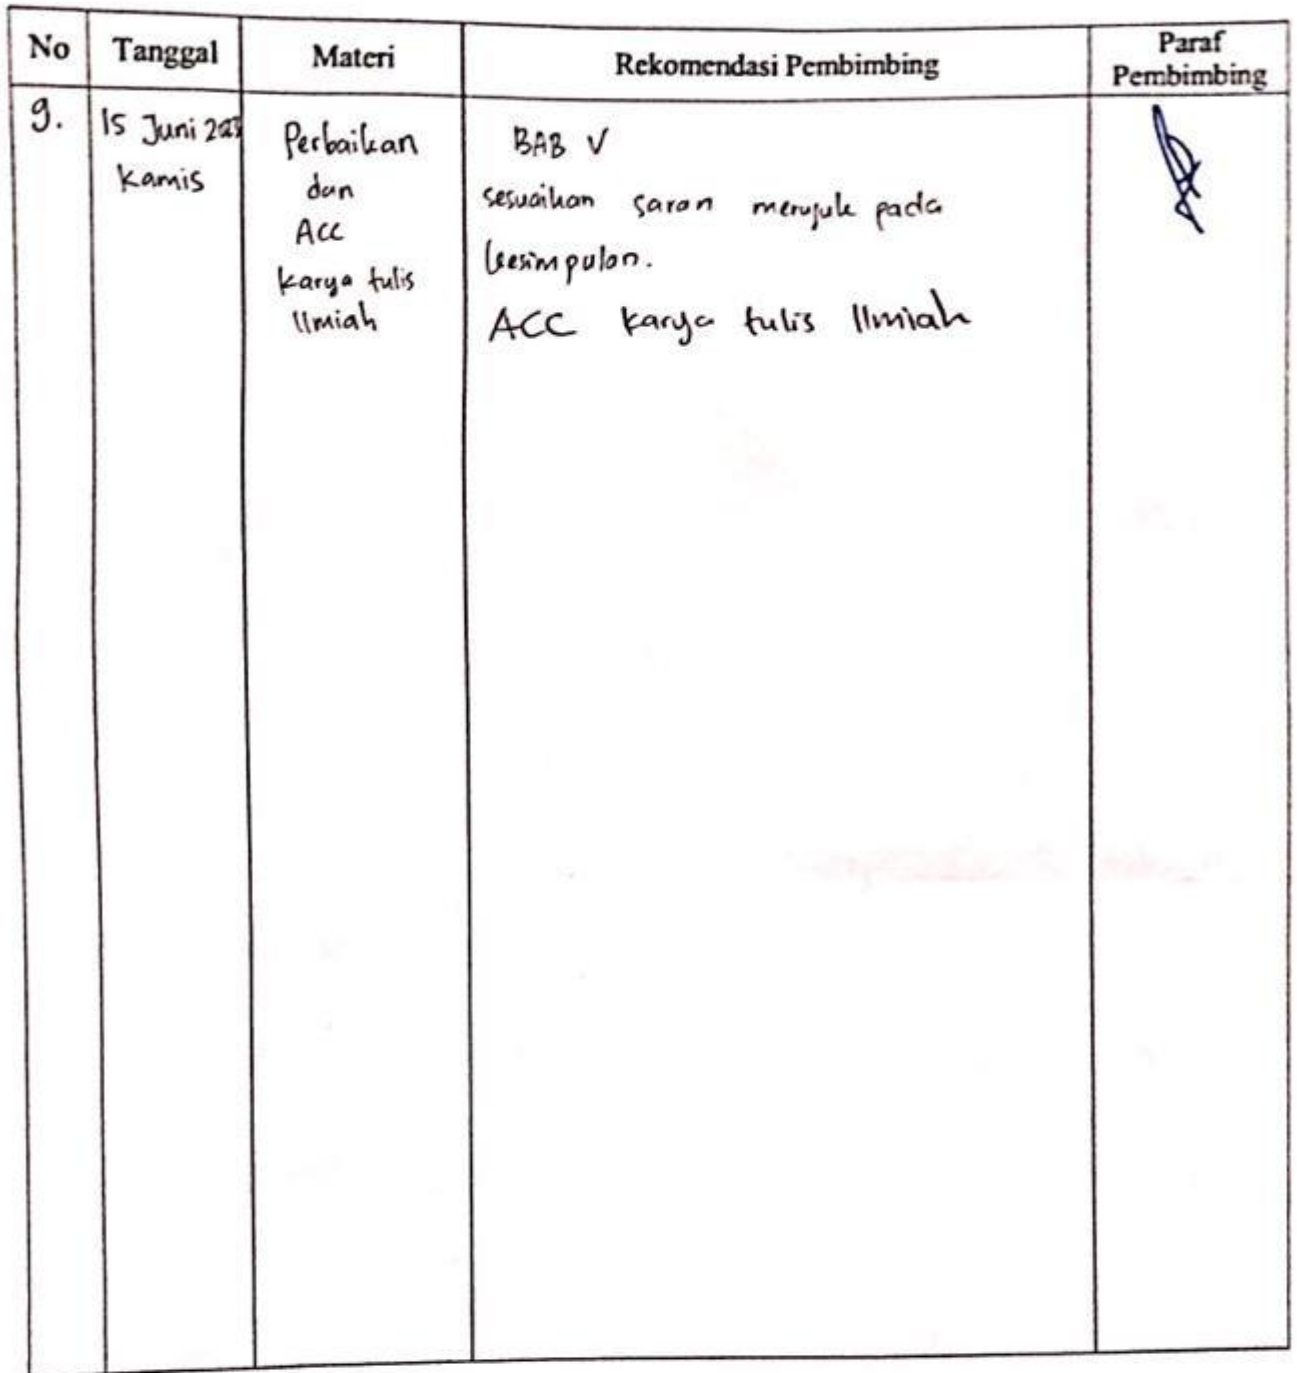 No Tanggal Materi Rekomendasi Pembimbing Paraf
Pembimbing
9.
15 Juni 2023
Kamis
Perbaikan
dan
Acc
karya tulis
Ilmiah
BAB V
sesuaikan saran merujuk pada
kesimpulan.
ACC karya tulis Ilmiah